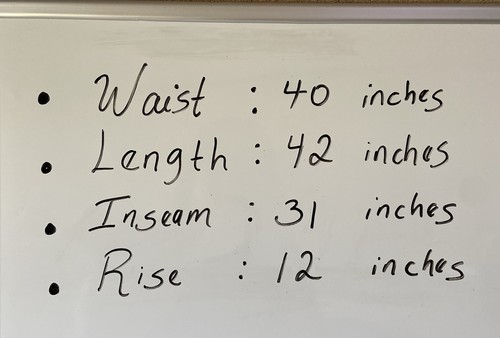 • Waist : 40 inches
• Length : 42 inches
• Inseam : 31 inches
• Rise : 12 inches